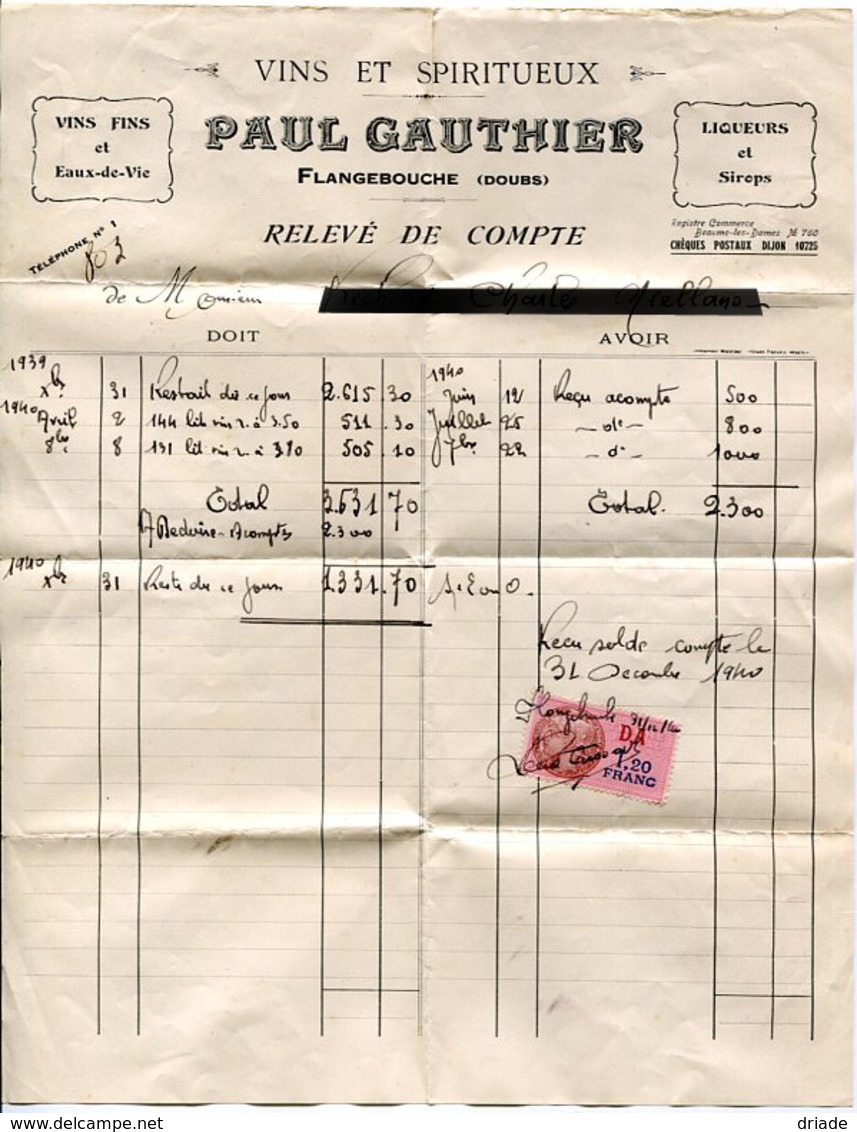 VINS ET SPIRITUEUX
VINS FINS
et
Eaux-de-Vie
PAUL GAUTHIER
FLANGEBOUCHE (DOUBS)
LIQUEURS
et
Sirops
TÉLÉPHONE N° 1
803
RELEVÉ DE COMPTE
Registre Commerce
Beaume-les-Dames № 760
CHÈQUES POSTAUX DIJON 10725
de Monsieur Charles
DOIT AVOIR
1939
Xbre 31 Restait dû ce jour 2.615.30
1940
Avril 2 144 lit vin r. à 3.50 511.30
8bre 8 131 lit vin r. à 3.80 505.10
Total 3.631.70
A Déduire Acomptes 2.300
1940
Xbre 31 Reste dû ce jour 1.331.70
1940
Juin 12 Reçu acompte 500
Juillet 25 - d° - 800
7bre 22 - d° - 1000
Total. 2.300
Reçu solde compte le
31 Decembre 1940
31/12/40
DA
1,20
FRANC
driade